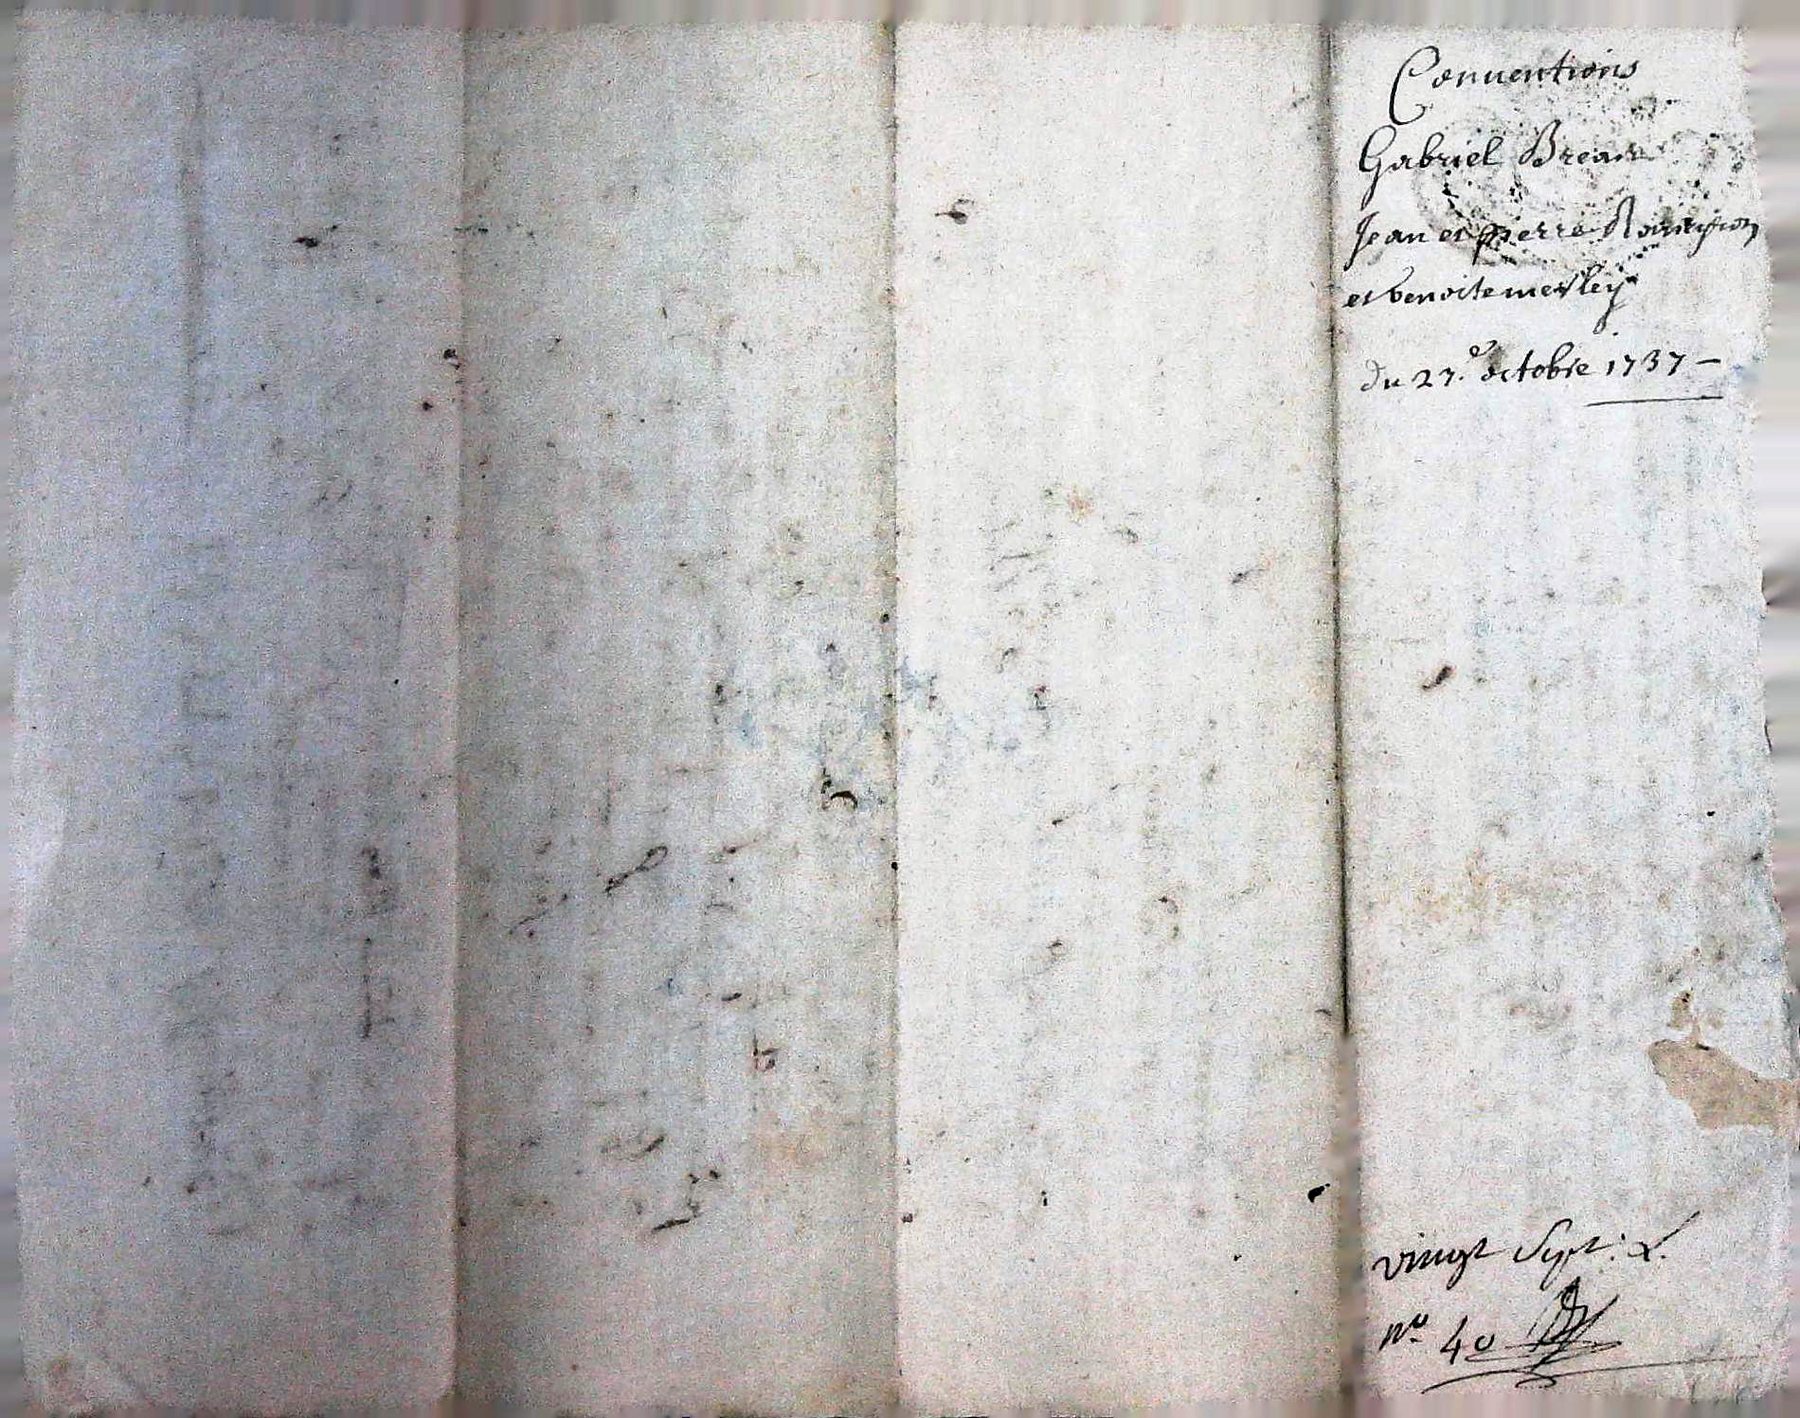 Conuentions
Gabriel Brear
Jean et pierre
et benoite merley
du 27.e octobre 1737 –
vingt Sept: L.
No 40